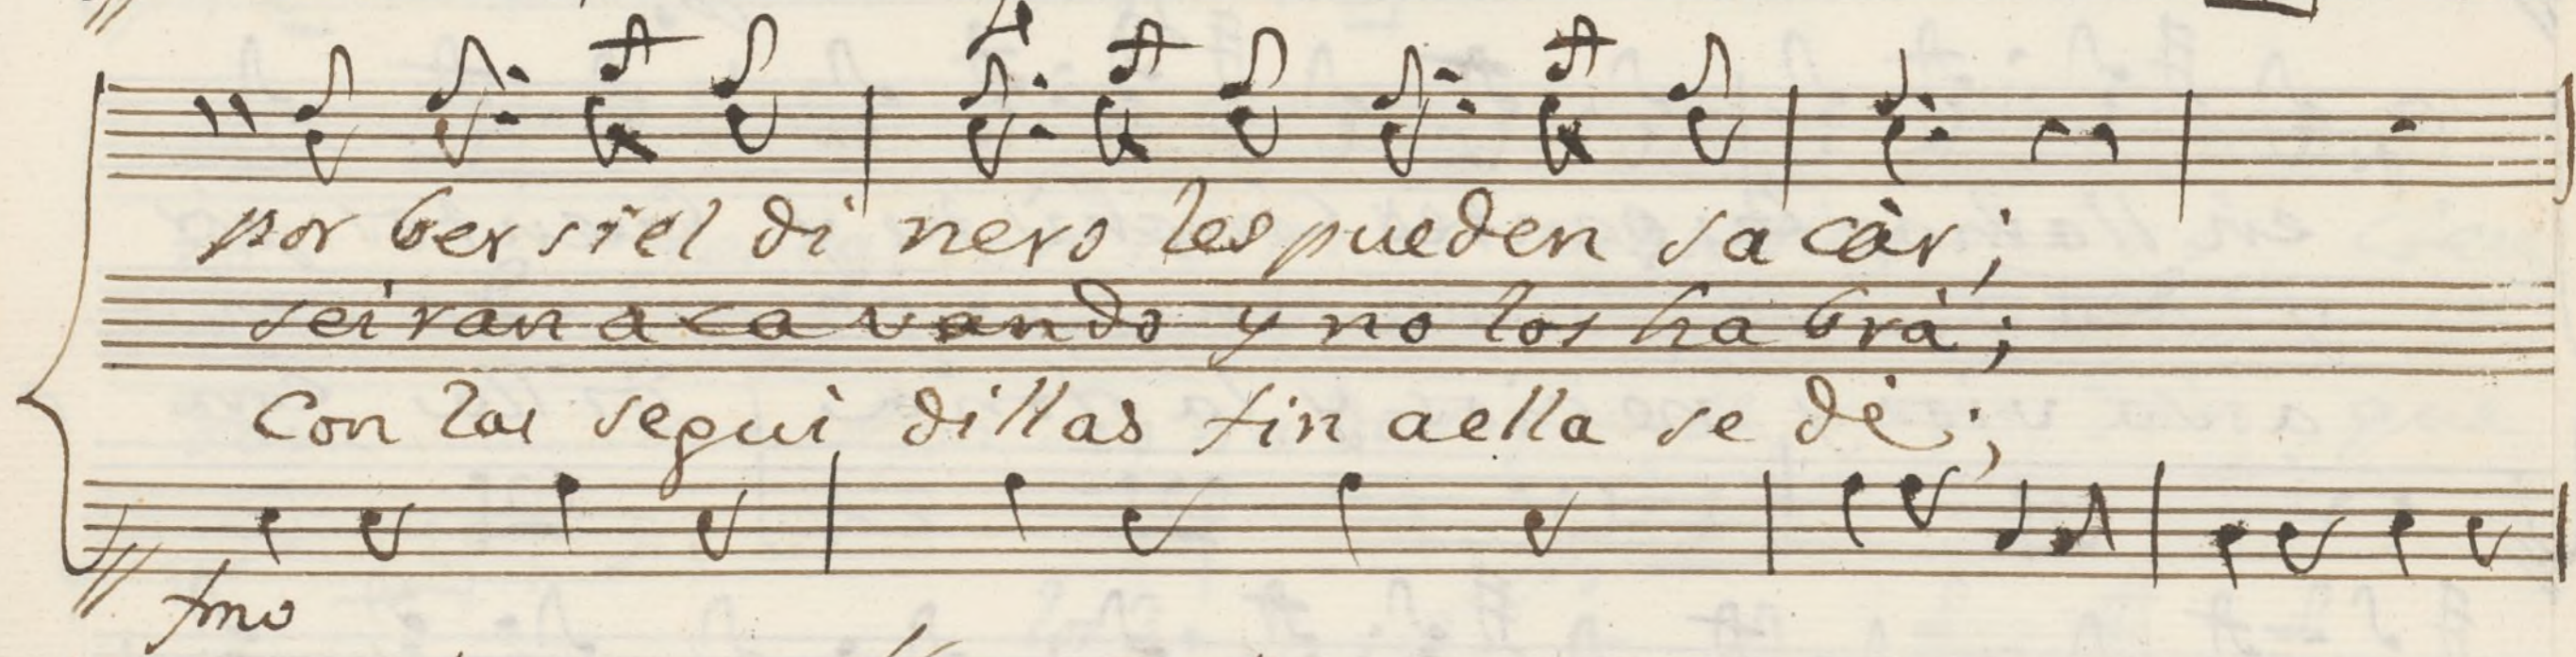 por ber siel di nero les pueden sa càr;
seiran a ca vando y no los ha brà;
Con las segui dillas fin aella se dè;
fmo